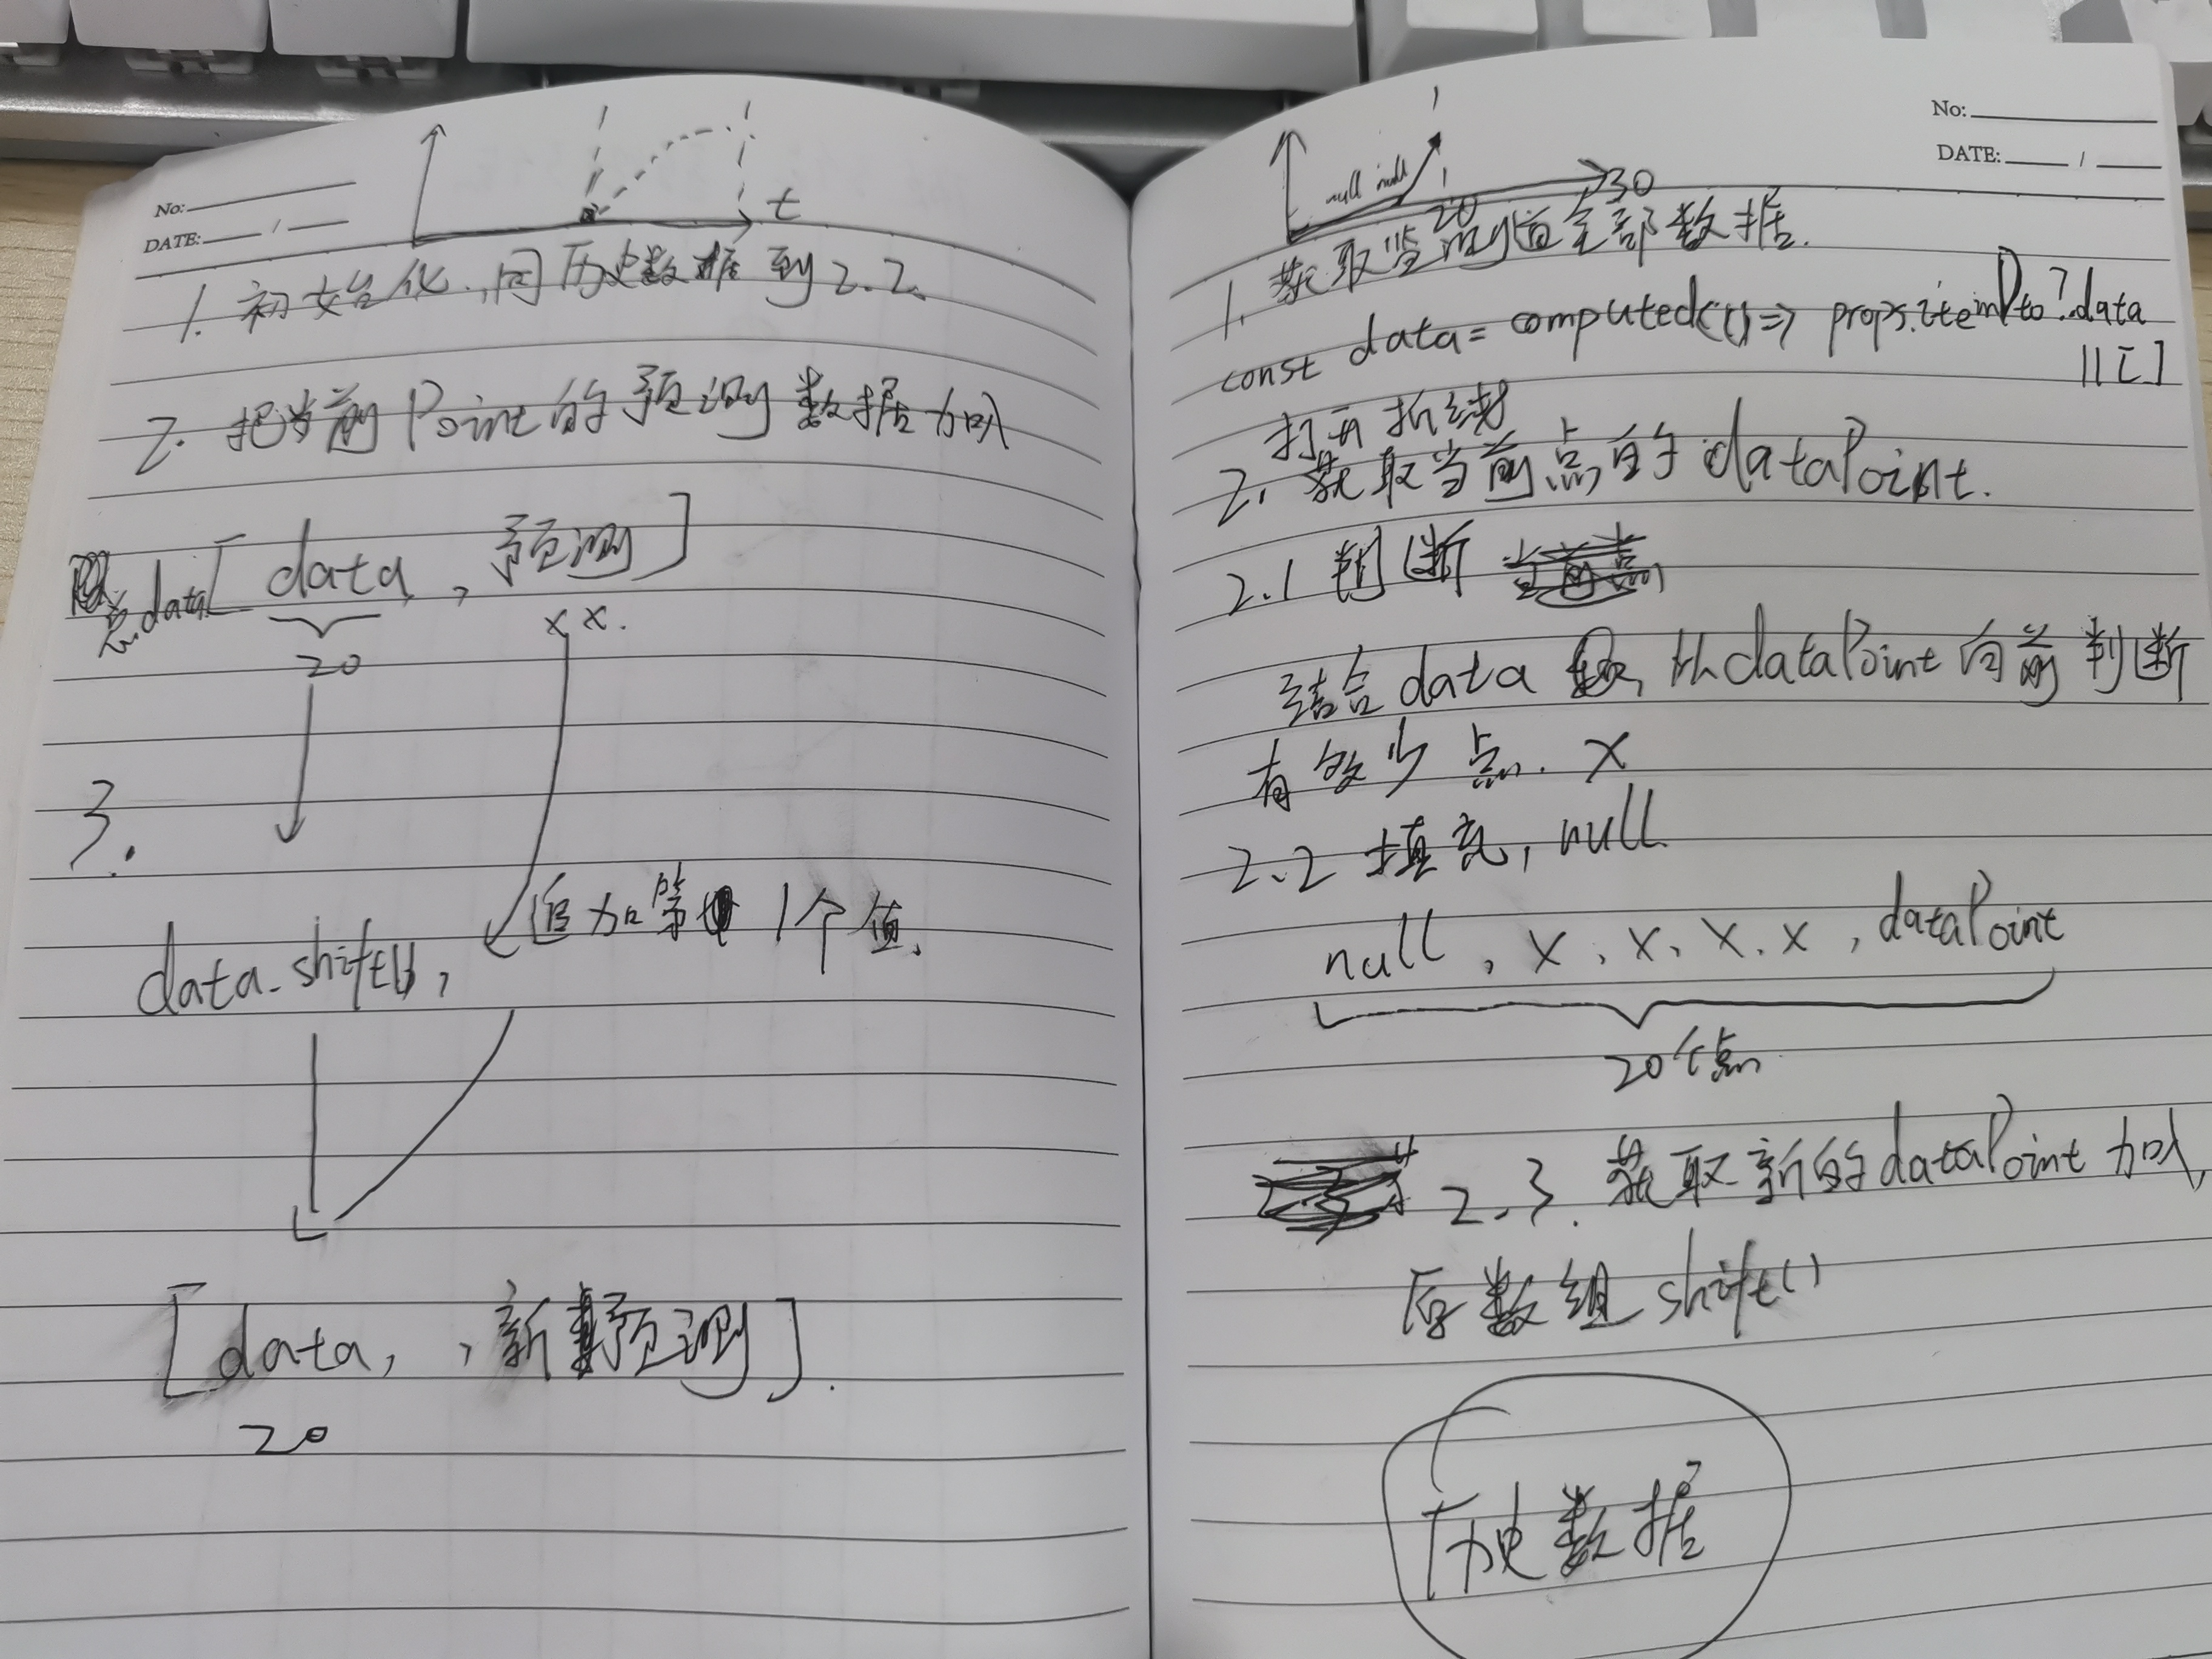 No:
DATE: /
t
1. 初始化,同历史数据到2.2.
2. 把当前Point的预测数据加入
总data[data, 预测]
20
x x.
3.
data.shift(), 追加第1个值.
[data, , 新预测].
20
No:
DATE: /
null null
20 30
1. 获取监测值全部数据.
const data = computed(() => props.itemDto?.data
|| []
打开折线
2. 获取当前点的dataPoint.
2.1 判断
结合data 从dataPoint向前判断
有多少点. x
2.2 填充, null
null, x, x, x, x, dataPoint
20个点
2.3. 获取新的dataPoint加入,
原数组shift()
历史数据